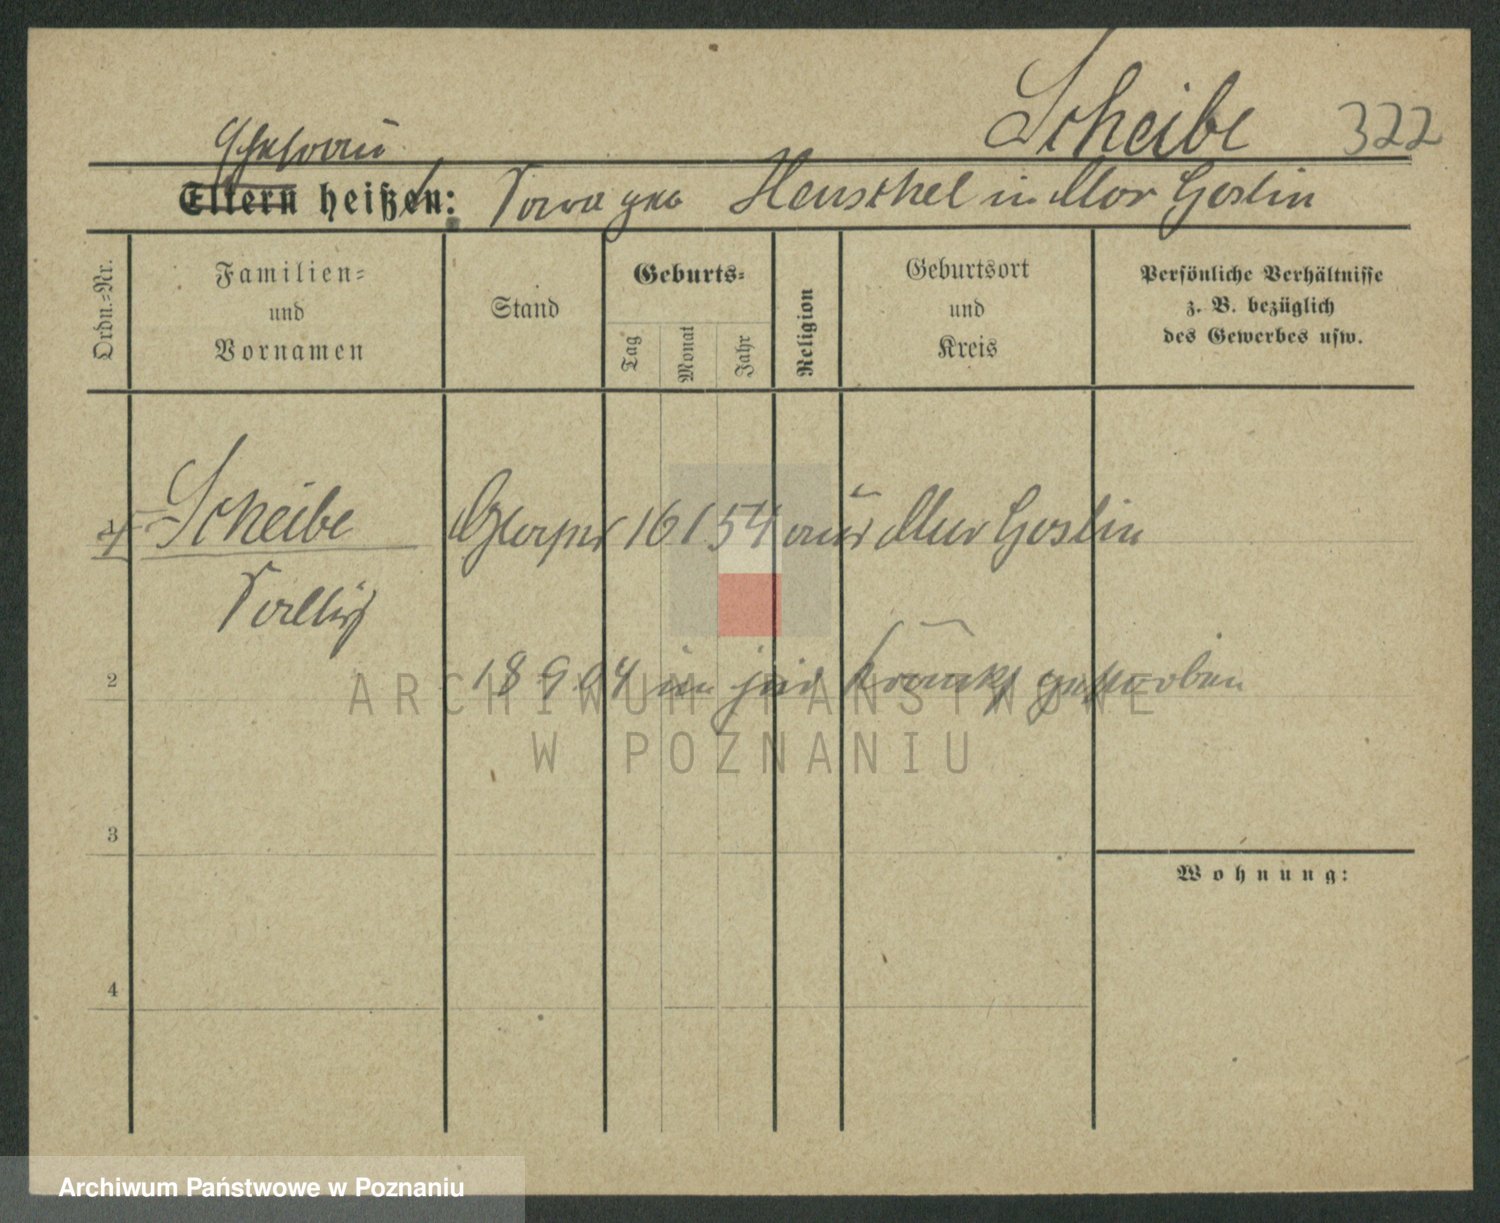 Scheibe 322
Ehefrau
Eltern heißen: Sara geb Henschel in Mur Goslin
Ordn.=Nr.
Familien=
und
Vornamen
Stand
Geburts=
Tag
Monat
Jahr
Religion
Geburtsort
und
Kreis
Persönliche Verhältnisse
z. B. bezüglich
des Gewerbes usw.
Scheibe Glaser 16 1 54 aus Mur Goslin
2
18 9 04 im jüd gestorben
3
Wohnung:
4
ARCHIWUM PAŃSTWOWE
W POZNANIU
Archiwum Państwowe w Poznaniu